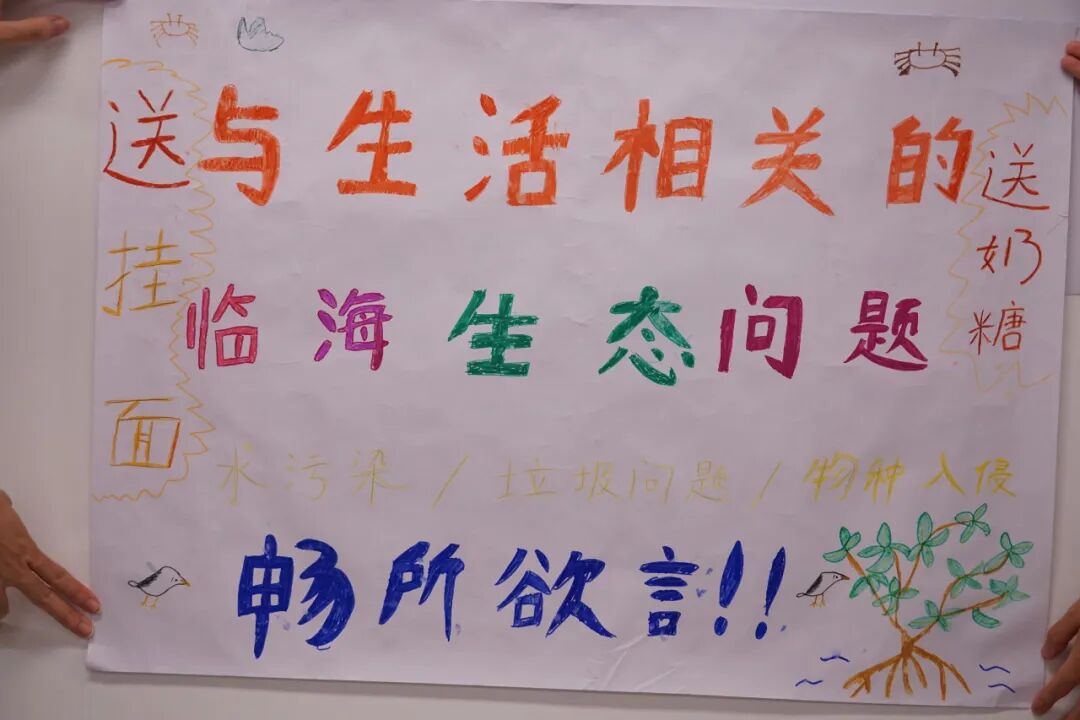 与生活相关的
临海生态问题
水污染/垃圾问题/物种入侵
畅所欲言!!
送挂面
送奶糖